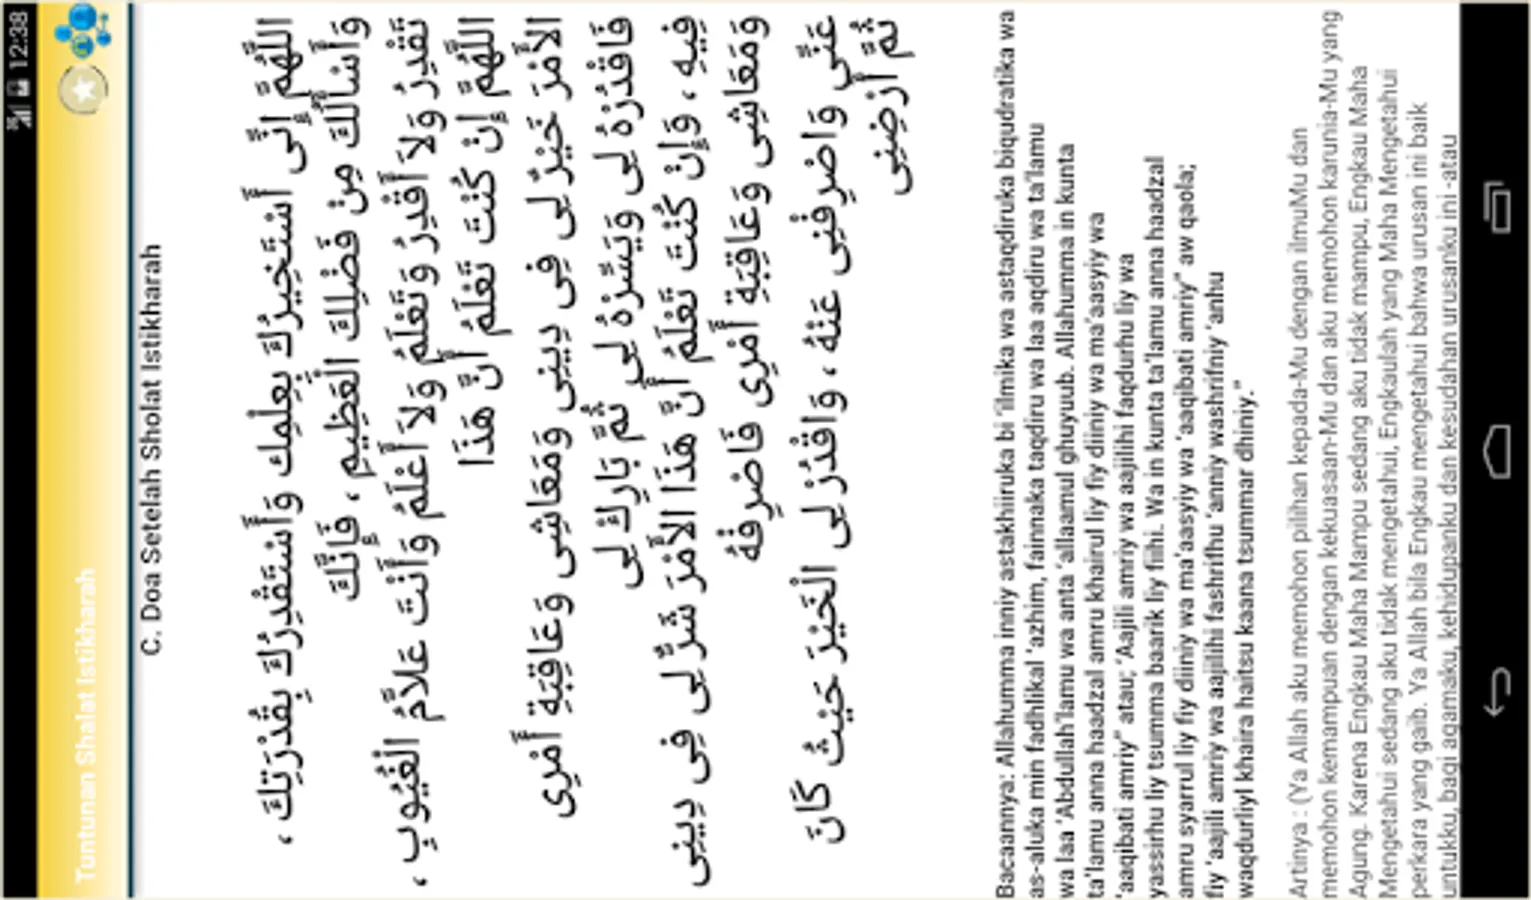 3G 12:38
Tuntunan Shalat Istikharah
C. Doa Setelah Sholat Istikharah
اَللّٰهُمَّ اِنِّى أَسْتَخِيْرُكَ بِعِلْمِكَ وَأَسْتَقْدِرُكَ بِقُدْرَتِكَ ،
وَأَسْأَلُكَ مِنْ فَضْلِكَ الْعَظِيْمِ ، فَاِنَّكَ
تَقْدِرُ وَلاَ أَقْدِرُ وَتَعْلَمُ وَلاَ أَعْلَمُ وَأَنْتَ عَلاَّمُ الْغُيُوْبِ ،
اَللّٰهُمَّ اِنْ كُنْتَ تَعْلَمُ أَنَّ هَذَا
الأَمْرَ خَيْرٌ لِى فِى دِيْنِى وَمَعَاشِى وَعَاقِبَةِ أَمْرِى
فَاقْدُرْهُ لِى وَيَسِّرْهُ لِى ثُمَّ بَارِكْ لِى
فِيْهِ ، وَاِنْ كُنْتَ تَعْلَمُ أَنَّ هَذَا الأَمْرَ شَرٌّ لِى فِى دِيْنِى
وَمَعَاشِى وَعَاقِبَةِ أَمْرِى فَاصْرِفْهُ
عَنِّى وَاصْرِفْنِى عَنْهُ ، وَاقْدُرْ لِى الْخَيْرَ حَيْثُ كَانَ
ثُمَّ أَرْضِنِى
Bacaannya: Allahumma inniy astakhiiruka bi 'ilmika wa astaqdiruka biqudratika wa
as-aluka min fadhlikal 'azhim, fainnaka taqdiru wa laa aqdiru wa ta'lamu
wa laa 'Abdullah'lamu wa anta 'allaamul ghuyuub. Allahumma in kunta
ta'lamu anna haadzal amru khairul liy fiy diiniy wa ma'aasyiy wa
'aaqibati amriy" atau; 'Aajili amriy wa aajilihi faqdurhu liy wa
yassirhu liy tsumma baarik liy fiihi. Wa in kunta ta'lamu anna haadzal
amru syarrul liy fiy diiniy wa ma'aasyiy wa 'aaqibati amriy" aw qaola;
fiy 'aajili amriy wa aajilihi fashrifhu 'anniy washrifniy 'anhu
waqdurliyl khaira haitsu kaana tsummar dhiniy."
Artinya : (Ya Allah aku memohon pilihan kepada-Mu dengan ilmuMu dan
memohon kemampuan dengan kekuasaan-Mu dan aku memohon karunia-Mu yang
Agung. Karena Engkau Maha Mampu sedang aku tidak mampu, Engkau Maha
Mengetahui sedang aku tidak mengetahui, Engkaulah yang Maha Mengetahui
perkara yang gaib. Ya Allah bila Engkau mengetahui bahwa urusan ini baik
untukku, bagi agamaku, kehidupanku dan kesudahan urusanku ini -atau